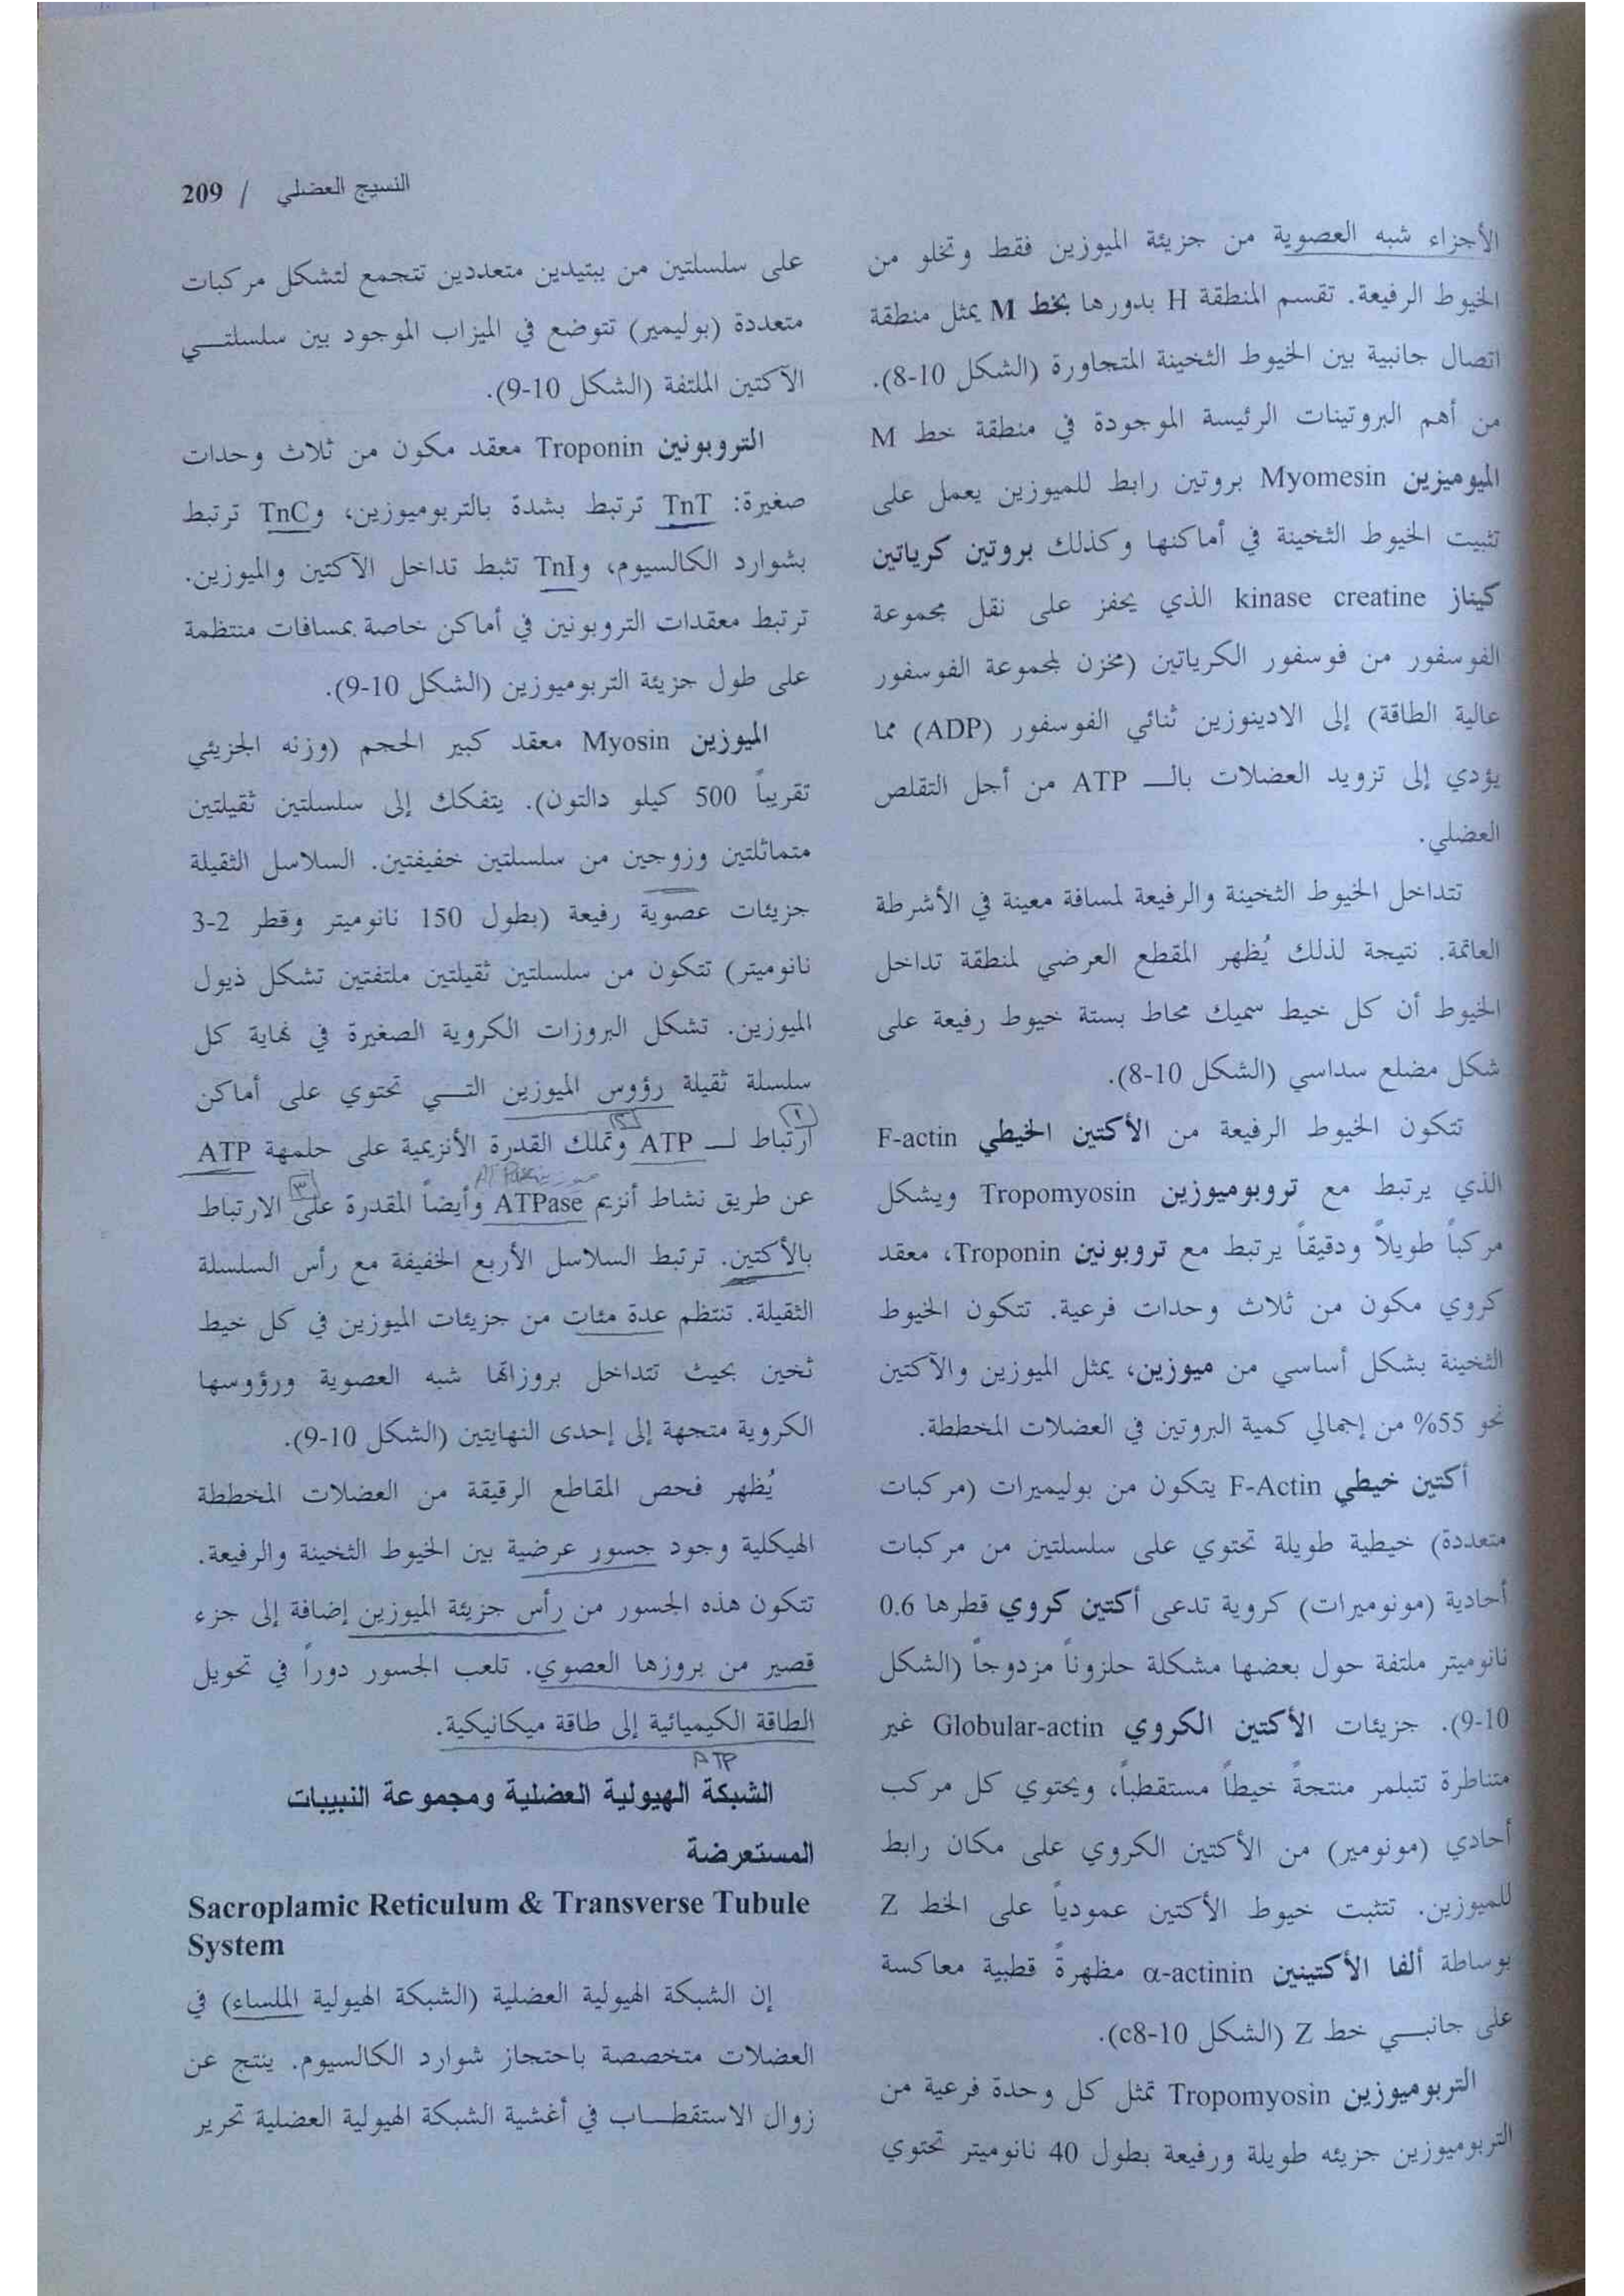 النسيج العضلي / 209
الأجزاء شبه العصوية من جزيئة الميوزين فقط وتخلو من
الخيوط الرفيعة. تقسم المنطقة H بدورها بخط M يمثل منطقة
اتصال جانبية بين الخيوط الثخينة المتجاورة (الشكل 10-8).
من أهم البروتينات الرئيسة الموجودة في منطقة خط M
الميوميزين Myomesin بروتين رابط للميوزين يعمل على
تثبيت الخيوط الثخينة في أماكنها وكذلك بروتين كرياتين
كيناز kinase creatine الذي يحفز على نقل مجموعة
الفوسفور من فوسفور الكرياتين (مخزن لمجموعة الفوسفور
عالية الطاقة) إلى الادينوزين ثنائي الفوسفور (ADP) مما
يؤدي إلى تزويد العضلات بالـــ ATP من أجل التقلص
العضلي.
تتداخل الخيوط الثخينة والرفيعة لمسافة معينة في الأشرطة
العاتمة. نتيجة لذلك يُظهر المقطع العرضي لمنطقة تداخل
الخيوط أن كل خيط سميك محاط بستة خيوط رفيعة على
شكل مضلع سداسي (الشكل 10-8).
تتكون الخيوط الرفيعة من الأكتين الخيطي F-actin
الذي يرتبط مع تروبوميوزين Tropomyosin ويشكل
مركباً طويلاً ودقيقاً يرتبط مع تروبونين Troponin، معقد
كروي مكون من ثلاث وحدات فرعية. تتكون الخيوط
الثخينة بشكل أساسي من ميوزين، يمثل الميوزين والآكتين
نحو 55% من إجمالي كمية البروتين في العضلات المخططة.
أكتين خيطي F-Actin يتكون من بوليميرات (مركبات
متعددة) خيطية طويلة تحتوي على سلسلتين من مركبات
أحادية (مونوميرات) كروية تدعى أكتين كروي قطرها 0.6
نانوميتر ملتفة حول بعضها مشكلة حلزوناً مزدوجاً (الشكل
10-9). جزيئات الأكتين الكروي Globular-actin غير
متناظرة تتبلمر منتجةً خيطاً مستقطباً، ويحتوي كل مركب
أحادي (مونومير) من الأكتين الكروي على مكان رابط
للميوزين. تتثبت خيوط الأكتين عمودياً على الخط Z
بوساطة ألفا الأكتينين α-actinin مظهرةً قطبية معاكسة
على جانبـــي خط Z (الشكل 10-c8).
التربوميوزين Tropomyosin تمثل كل وحدة فرعية من
التربوميوزين جزيئه طويلة ورفيعة بطول 40 نانوميتر تحتوي
على سلسلتين من ببتيدين متعددين تتجمع لتشكل مركبات
متعددة (بوليمير) تتوضع في الميزاب الموجود بين سلسلتـــي
الآكتين الملتفة (الشكل 10-9).
التروبونين Troponin معقد مكون من ثلاث وحدات
صغيرة: TnT ترتبط بشدة بالتربوميوزين، وTnC ترتبط
بشوارد الكالسيوم، وTnI تثبط تداخل الآكتين والميوزين.
ترتبط معقدات التروبونين في أماكن خاصة بمسافات منتظمة
على طول جزيئة التربوميوزين (الشكل 10-9).
الميوزين Myosin معقد كبير الحجم (وزنه الجزيئي
تقريباً 500 كيلو دالتون). يتفكك إلى سلسلتين ثقيلتين
متماثلتين وزوجين من سلسلتين خفيفتين. السلاسل الثقيلة
جزيئات عصوية رفيعة (بطول 150 نانوميتر وقطر 2-3
نانوميتر) تتكون من سلسلتين ثقيلتين ملتفتين تشكل ذيول
الميوزين. تشكل البروزات الكروية الصغيرة في نهاية كل
سلسلة ثقيلة رؤوس الميوزين التـــي تحتوي على أماكن
١ ٢
ارتباط لـــ ATP وتملك القدرة الأنزيمية على حلمهة ATP
٣
عن طريق نشاط أنزيم ATPase وأيضاً المقدرة على الارتباط
بالأكتين. ترتبط السلاسل الأربع الخفيفة مع رأس السلسلة
الثقيلة. تنتظم عدة مئات من جزيئات الميوزين في كل خيط
ثخين بحيث تتداخل بروزاتها شبه العصوية ورؤوسها
الكروية متجهة إلى إحدى النهايتين (الشكل 10-9).
يُظهر فحص المقاطع الرقيقة من العضلات المخططة
الهيكلية وجود جسور عرضية بين الخيوط الثخينة والرفيعة.
تتكون هذه الجسور من رأس جزيئة الميوزين إضافة إلى جزء
قصير من بروزها العصوي. تلعب الجسور دوراً في تحويل
الطاقة الكيميائية إلى طاقة ميكانيكية.
ATP
الشبكة الهيولية العضلية ومجموعة النبيبات
المستعرضة
Sacroplamic Reticulum & Transverse Tubule
System
إن الشبكة الهيولية العضلية (الشبكة الهيولية الملساء) في
العضلات متخصصة باحتجاز شوارد الكالسيوم. ينتج عن
زوال الاستقطـــاب في أغشية الشبكة الهيولية العضلية تحرير